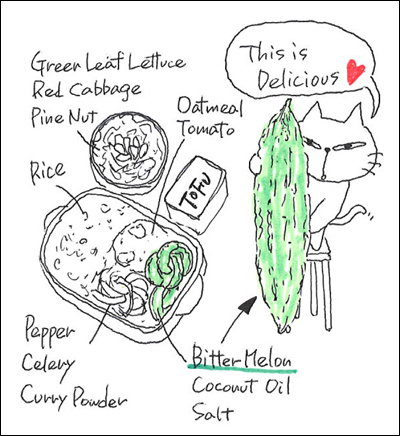 Green Leaf Lettuce
Red Cabbage
Pine Nut
Oatmeal
Tomato
This is
Delicious
Rice
TOFU
Pepper
Celery
Curry Powder
Bitter Melon
Coconut Oil
Salt